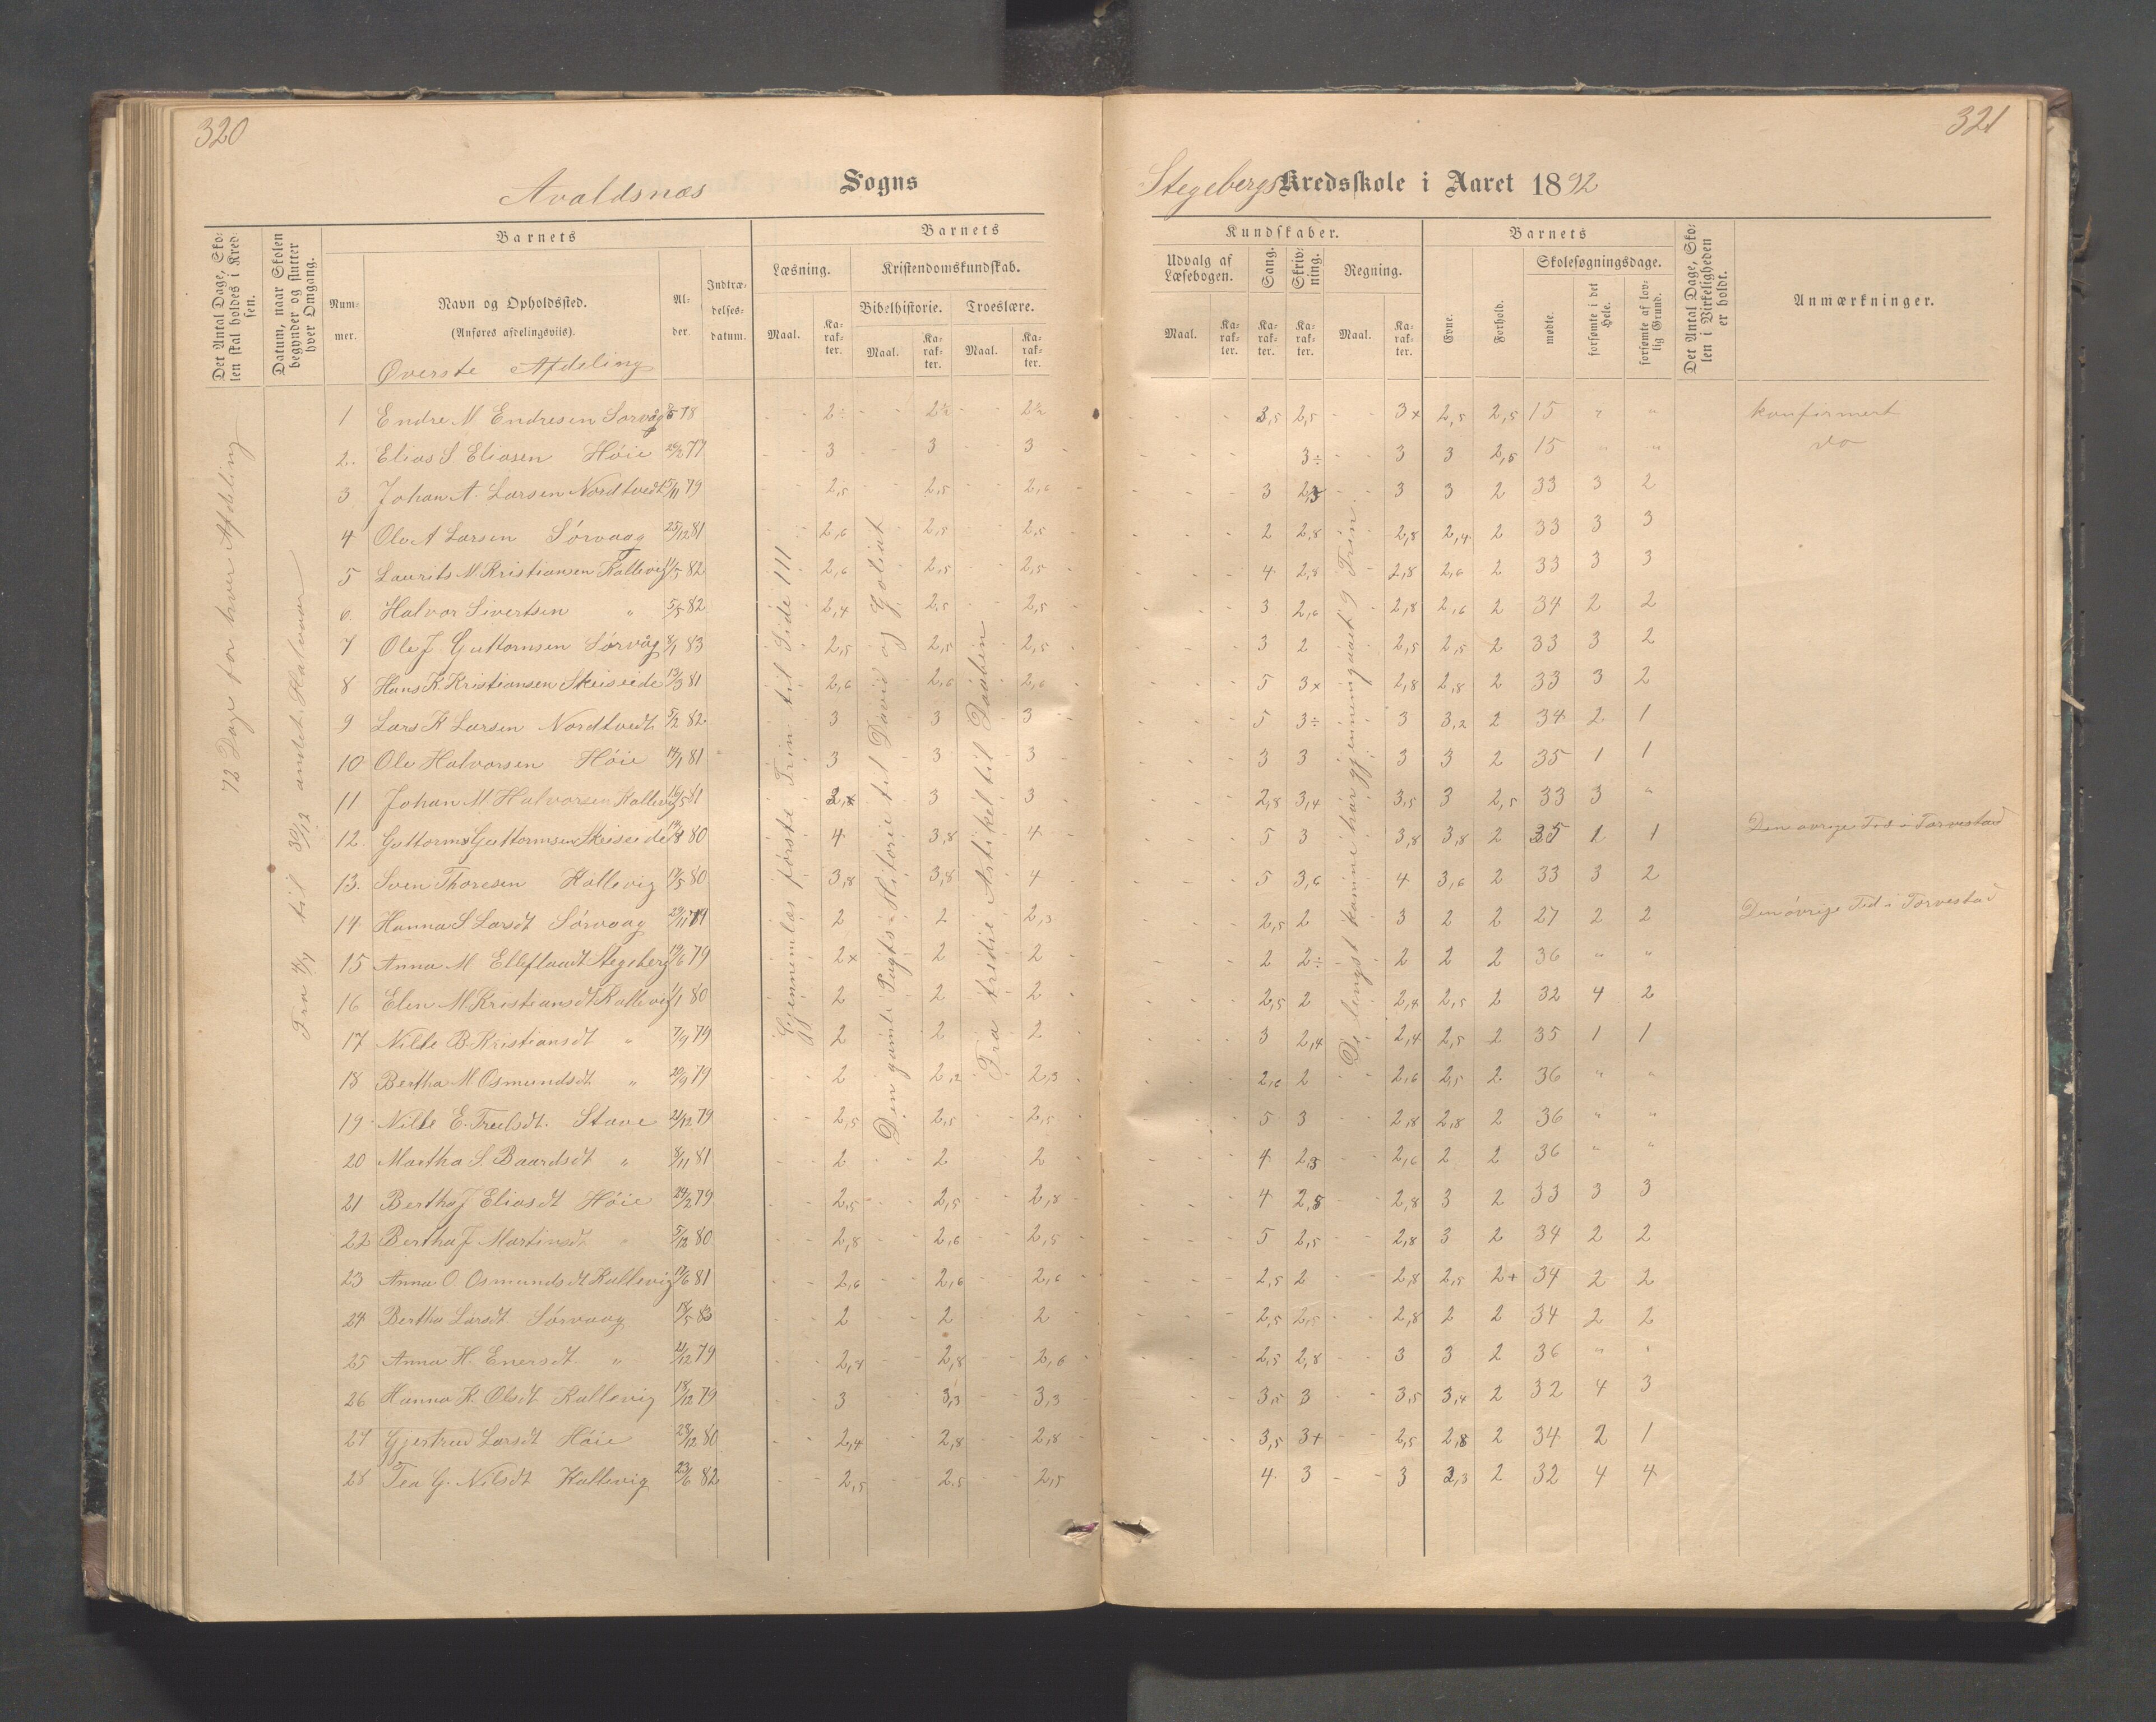 320
321
Avaldsnæs Sogns
Stegebergs Kredsskole i Aaret 1892
Det Antal Dage, Skolen skal holdes i Kredsen.
Datum, naar Skolen begynder og slutter hver Omgang.
Barnets
Nummer.
Navn og Opholdssted.
(Anføres afdelingsviis).
Alder.
Indtrædelsesdatum.
Barnets
Læsning.
Kristendomskundskab.
Bibelhistorie.
Troeslære.
Maal. Karakter. Maal. Karakter. Maal. Karakter.
Kundskaber.
Udvalg af Læsebogen.
Sang.
Skrivning.
Regning.
Maal. Karakter. Karakter. Karakter. Maal. Karakter.
Barnets
Evne.
Forhold.
Skolesøgningsdage.
mødte.
forsømte i det Hele.
forsømte af lovlig Grund.
Det Antal Dage, Skolen i Virkeligheden er holdt.
Anmærkninger.
Øverste Afdeling
72 Dage for hver Afdeling
Fra 4/7 til 30/12 andet Halvaar
Gjennemlæs første Trin til Side 111
Den gamle Pagts Hitorie til David og Goliat
Fra tredie Artikel til Daaben
De lengst komne har gjennemgaaet 9 Trin
1 Endre M Endresen Sørvåg 78 2÷ 2½ 2½ 3,5 2,5 3x 2,5 2,5 15 " " konfirmert
2. Elias S Eliasen Høie 77 3 3 3 3÷ 3 3 2,5 15 " " do
3 Johan A. Larsen Nordtvedt 5/11 79 2,5 2,5 2,6 3 2,3 3 3 2 33 3 2
4 Ole A Larsen Sørvaag 25/12 81 2,6 2,5 2,5 2 2,8 2,8 2,4 2 33 3 3
5 Laurits M Kristiansen Kallevig 82 2,6 2,5 2,5 4 2,8 2,8 2,6 2 33 3 3
6. Halvor Sivertsen " 5/5 82 2,4 2,5 2,5 3 2,6 2,8 2,6 2 34 2 2
7 Ole J. Guttormsen Sørvåg 8/1 83 2,5 2,5 2,5 3 2 2,5 2,5 2 33 3 2
8 Hans K. Kristiansen Skeiseide 13/3 81 2,6 2,6 2,6 5 3x 2,8 2,8 2 33 3 2
9 Lars K Larsen Nordtvedt 5/2 82 3 3 3 5 3÷ 3 3,2 2 34 2 1
10 Ole Halvorsen Høie 14/1 81 3 3 3 3 3 3 3 2 35 1 1
11 Johan M Halvorsen Kallevig 16/5 81 3x 3 3 2,8 3,4 3,5 3 2,5 33 3 "
12. Guttorm Guttormsen Skeiseide 80 4 3,8 4 5 3 3,8 3,8 2 35 1 1 Den øvrige Tid i Torvestad
13. Sven Thoresen Kallevig 80 3,8 3,8 4 5 3,6 4 3,6 2 33 3 2
14 Hanna S Larsdt Sørvaag 29/11 79 2 2 2,3 2,5 2 3 2 2 27 2 2 Den øvrige Tid i Torvestad
15 Anna M Ellefsdt Stegeberg 19/6 79 2x 2 2 2 2÷ 2 2 2 36 " "
16 Elen M Kristiansdt Kallevig 1/1 80 2 2 2 2,5 2 2,4 2,5 2 32 4 2
17 Nille B. Kristiansdt " 7/9 79 2 2 2 3 2,4 2,4 2,5 2 35 1 1
18 Bertha M Osmundsdt " 20/9 79 2 2,2 2,3 2,6 2 2,6 2,5 2 36 " "
19. Nille E. Troelsdt. Stave 21/12 79 2,5 2,5 2,5 5 3 2,8 2,8 2 36 " "
20 Martha S. Baardsdt " 8/11 81 2 2 2 4 2,3 2,6 2 2 36 " "
21 Bertha J Eliasdt Høie 24/2 79 2,5 2,5 2,8 4 2,5 2,8 3 2 33 3 3
22 Bertha J Martinsdt " 5/12 80 2,8 2,6 2,5 5 2,5 2,8 3 2 34 2 2
23 Anna O. Osmundsdt Kallevig 81 2,6 2,6 2,6 2,5 2 2,8 2,5 2+ 34 2 2
24 Bertha Larsdt Sørvaag 18/5 83 2 2 2 2,5 2,5 2,8 2 2 34 2 2
25 Anna H. Enersdt " 21/12 79 2,4 2,8 2,6 2,5 2,8 3 3 2 36 " "
26 Hanna K. Olsdt Kallevig 18/12 79 3 3,3 3,3 3,5 3 3,5 3,4 2 32 4 3
27 Gjertrud Larsdt Høie 29/12 80 2,4 2,8 2,8 3,5 3+ 2,5 2,8 2 34 2 1
28 Tea G. Nilsdt Kallevig 23/6 82 2,5 2.5 2,5 4 3 3 3,3 2 32 4 4